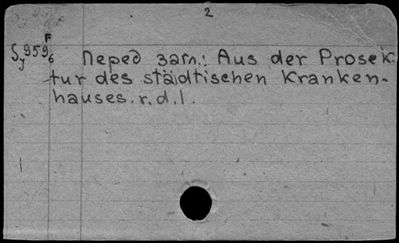 2
F
Sy 959/6 Перед заm.: Aus der Prosek
tur des städtischen Kranken-
hauses.r.d.I.